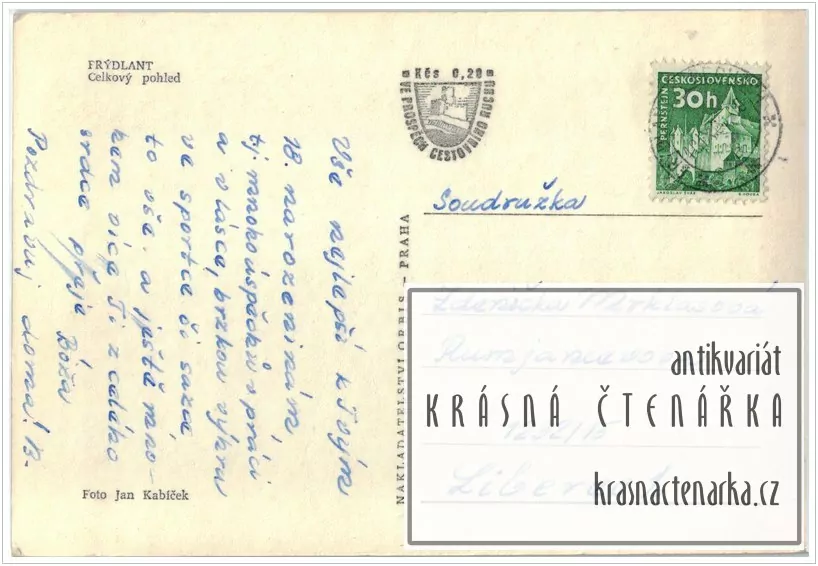 FRÝDLANT
Celkový pohled
Kčs 0,20
VE PROSPĚCH CESTOVNÍHO RUCHU
ČESKOSLOVENSKO
30h
PERNŠTEJN
Vše nejlepší k Tvým
18. narozeninám,
tj. mnoho úspěchů v práci
a v lásce, brzkou výhru
ve sportce či sazce
to vše, a ještě mno-
hem více Ti z celého
srdce přeje Boža
Pozdravuj doma! B.
Foto Jan Kabíček
NAKLADATELSTVÍ ORBIS - PRAHA
Soudružka
Zdenička
1292/15
Liberec
antikvariát
KRÁSNÁ ČTENÁŘKA
krasnactenarka.cz